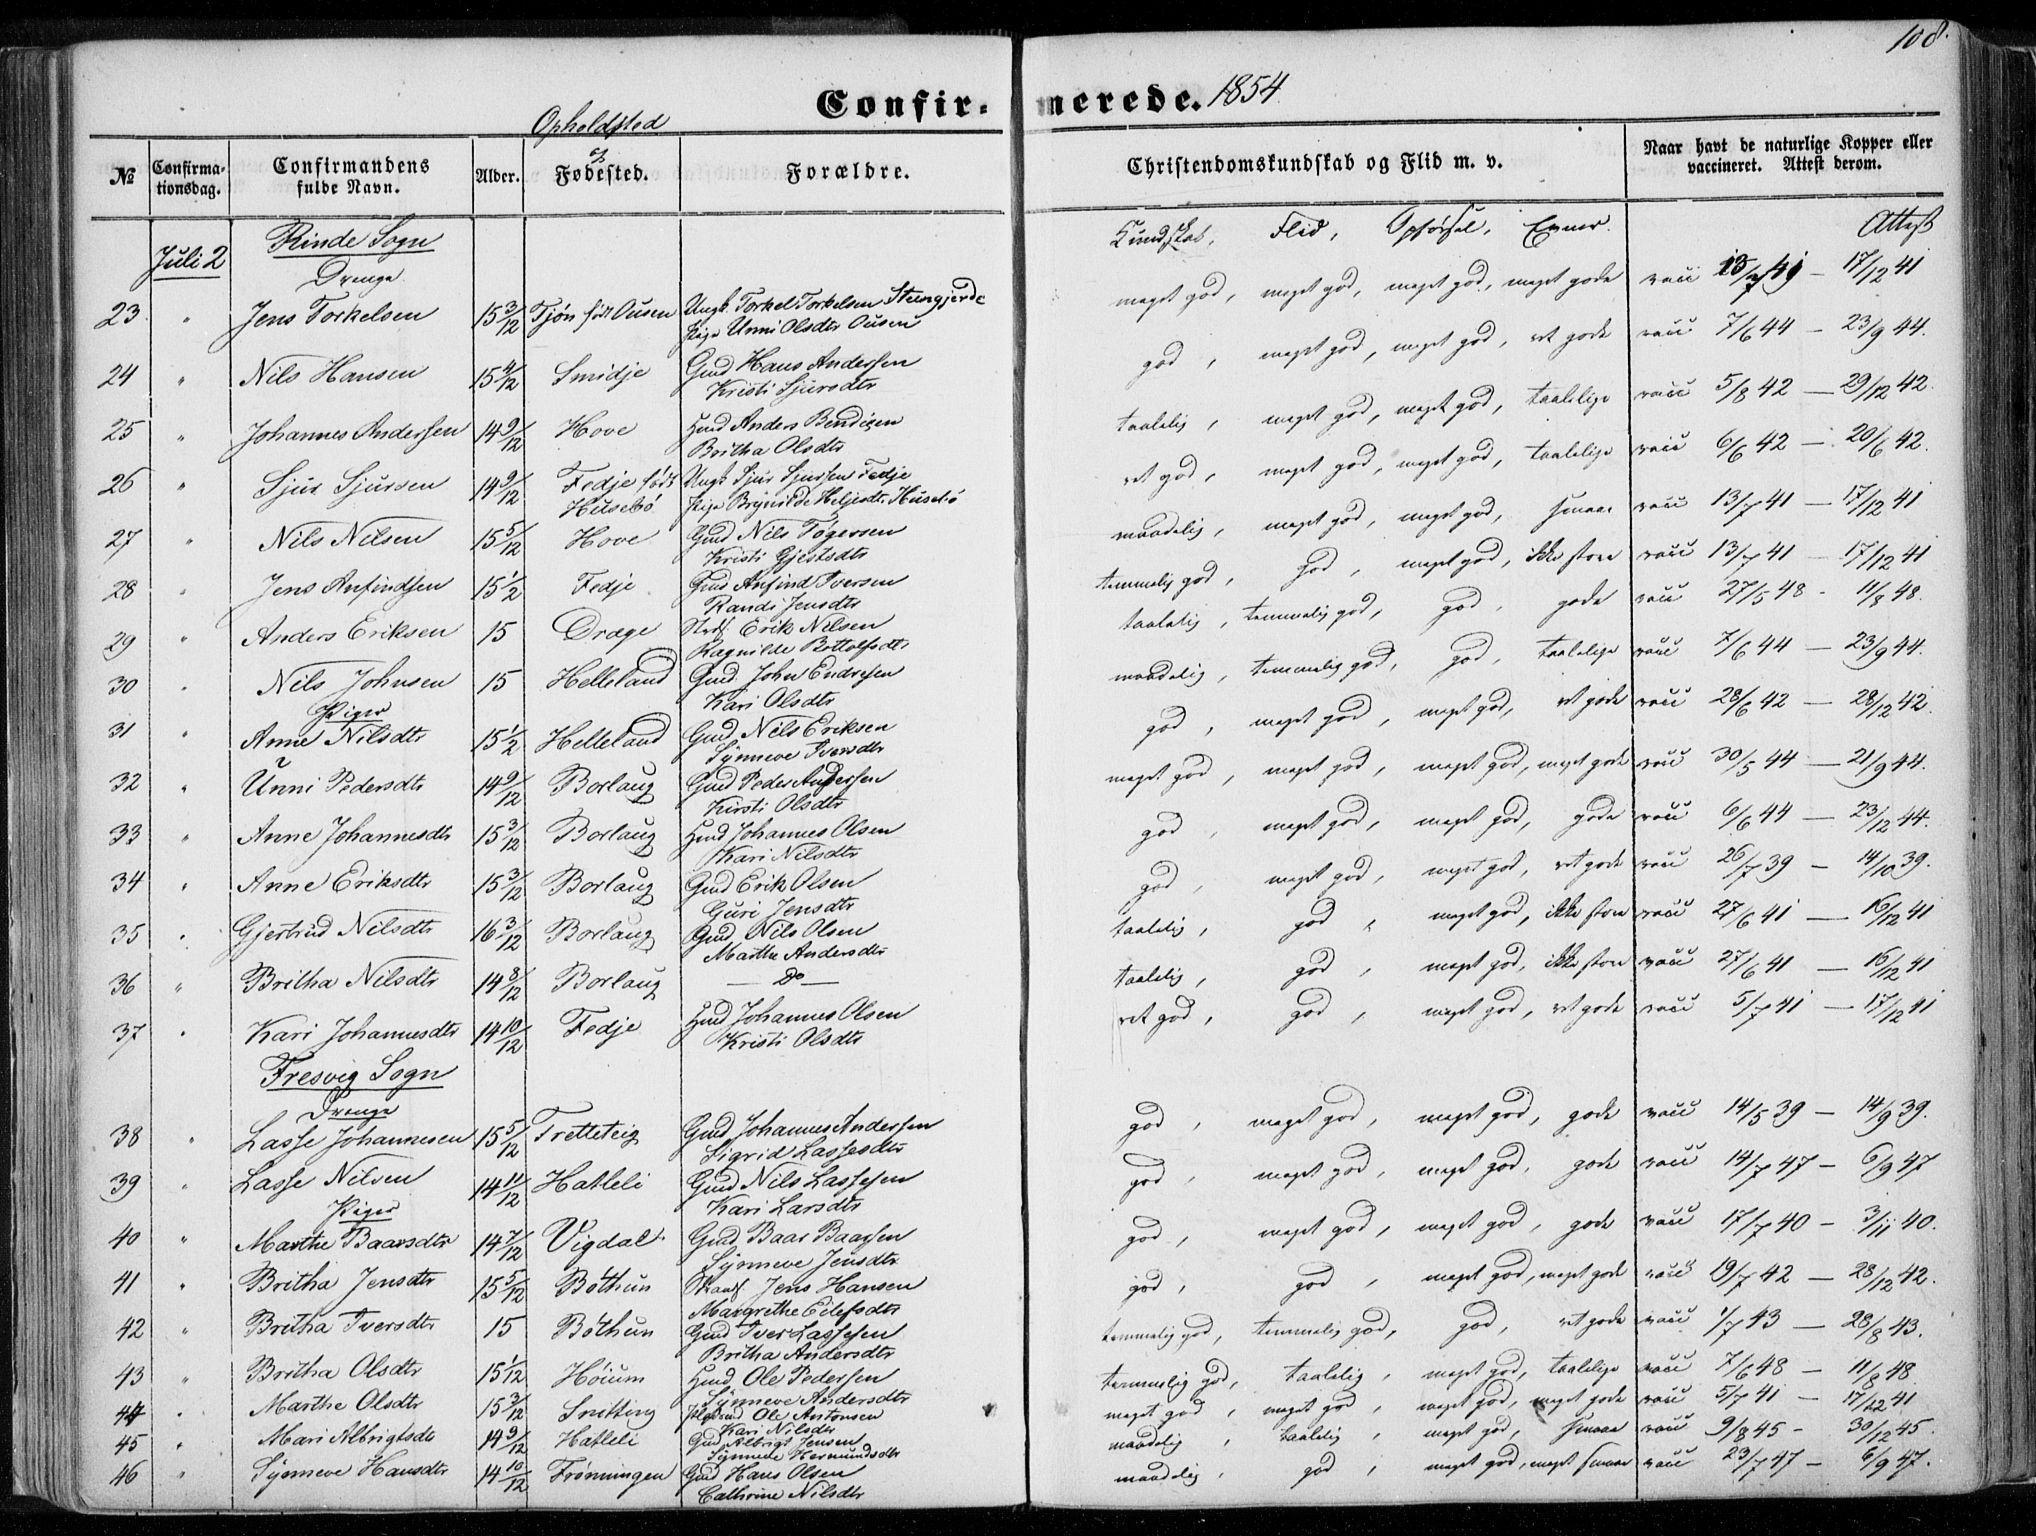 108.
Confirmerede. 1854.
Opholdsted
№ Confirmationsdag. Confirmandens fulde Navn. Alder. & Fødested. Forældre. Christendomskundskab og Flid m. v. Naar havt de naturlige Kopper eller vaccineret. Attest derom.
Rinde Sogn Kundskab, Flid, Opførsel, Evner. Attest
Juli 2
Drenge
23 " Jens Torkelsen 15 3/12 Tjøn født Ousen Ungk. Torkel Torkelsen Stengjerde meget god, meget god, meget god, meget gode vacc 13/7 41 – 17/12 41
Pige Unni Olsdtr Ousen
24 " Nils Hansen 15 4/12 Smidje Gmd Hans Andersen god, meget god, meget god, ret gode vacc 7/6 44 – 23/9 44.
Kristi Sjursdtr
25 " Johannes Andersen 14 9/12 Hove Hmd Anders Bendixen taalelig, meget god, meget god, taalelige vacc 5/8 42 – 29/12 42.
Britha Olsdtr
26 " Sjur Sjursen 14 9/12 Fedje født Ungk Sjur Sjursen Fedje ret god, meget god, meget god, taalelige vacc 6/6 42 – 20/6 42.
Husebø Pige Brynilde Heljesdtr Husebø
27 " Nils Nilsen 15 5/12 Hove Gmd Nils Tøgersen maadelig, meget god, meget god, smaae vacc 13/7 41 – 17/12 41
Kristi Gjestsdtr
28 " Jens Anfindsen 15 1/2 Fedje Gmd Anfind Iversen temmelig god, god, meget god, ikke store vacc 13/7 41 – 17/12 41
Randi Jensdtr
29 " Anders Eriksen 15 Dræge Erik Nilsen taalelig, temmelig god, god, gode vacc 27/5 48 - 11/8 48.
Ragnilde Bottolfsdtr
30 " Nils Johnsen 15 Helleland Gmd John Endresen maadelig, temmelig god, god, taalelige vacc 7/6 44 – 23/9 44.
Kari Olsdtr
Piger
31 " Anne Nilsdtr 15 1/2 Helleland Gmd Nils Eriksen god, meget god, meget god, ret gode vacc 28/6 42 – 28/12 42.
Synneve Iversdtr
32 " Unni Pedersdtr 14 9/12 Borlaug Gmd Peder Andersen meget god, meget god, meget god, meget gode vacc 30/5 44 – 21/9 44.
Kirsti Olsdtr
33 " Anne Johannesdtr 15 3/12 Borlaug Hmd Johannes Olsen god, meget god, meget god, gode vacc 6/6 44 – 23/12 44.
Kari Nilsdtr
34 " Anne Eriksdtr 15 3/12 Borlaug Gmd Erik Olsen god, meget god, meget god, ret gode vacc 26/7 39 – 14/10 39.
Guri Jensdtr
35 " Gjertrud Nilsdtr 16 3/12 Borlaug Gmd Nils Olsen taalelig, god, meget god, ikke store vacc 27/6 41 – 16/12 41
Marthe Andersdtr
36 " Britha Nilsdtr 14 8/12 Borlaug — Do — taalelig, god, meget god, ikke store vacc 27/6 41 – 16/12 41
37 " Kari Johannesdtr 14 10/12 Fedje Hmd Johannes Olsen ret god, god, meget god, ret gode vacc 5/7 41 – 17/12 41
Kristi Olsdtr
Fresvig Sogn
Drenge
38 " Lasse Johannesen 15 5/12 Tretteteig Gmd Johannes Andersen god, meget god, meget god, gode vacc 14/5 39 – 14/9 39.
Sigrid Lassesdtr
39 " Lasse Nilsen 14 11/12 Hatleli Gmd Nils Lassesen god, meget god, meget god, gode vacc 14/7 47 – 6/9 47
Kari Larsdtr
Piger
40 " Marthe Baarsdtr 14 7/12 Vigdal Gmd Baar Baarsen god, meget god, meget god, gode vacc 17/7 40 – 3/11 40.
Synneve Jensdtr
41 " Britha Jensdtr 15 5/12 Bøthun Jens Hansen god, god, meget god, meget gode vacc 19/7 42 – 28/12 42.
Margrethe Eilefsdtr
42 " Britha Iversdtr 15 Bøthun Gmd Iver Lassesen temmelig god, temmelig god, god, ret gode vacc 1/7 43 – 28/8 43.
Britha Andersdtr
43 " Britha Olsdtr 15 1/12 Høium Hmd Ole Pedersen temmelig god, taalelig, meget god, taalelige vacc 7/6 48 – 11/8 48
Synneve Andersdtr
44 " Marthe Olsdtr 15 3/12 Snitting Ole Antonsen meget god, meget god, meget god, meget gode vacc 5/7 41 – 17/12 41
Kari Nilsdtr
45 " Mari Albrigtsdtr 14 9/12 Hatleli Gmd Albrigt Jensen maadelig, taalelig, meget god, smaae vacc 9/8 45 - 30/12 45.
Synneve Hermundsdtr
46 " Synneve Hansdtr 14 10/12 Frønningen Gmd Hans Olsen maadelig, god, meget god, meget smaae vacc 23/7 47 – 6/9 47.
Cathrine Nilsdtr